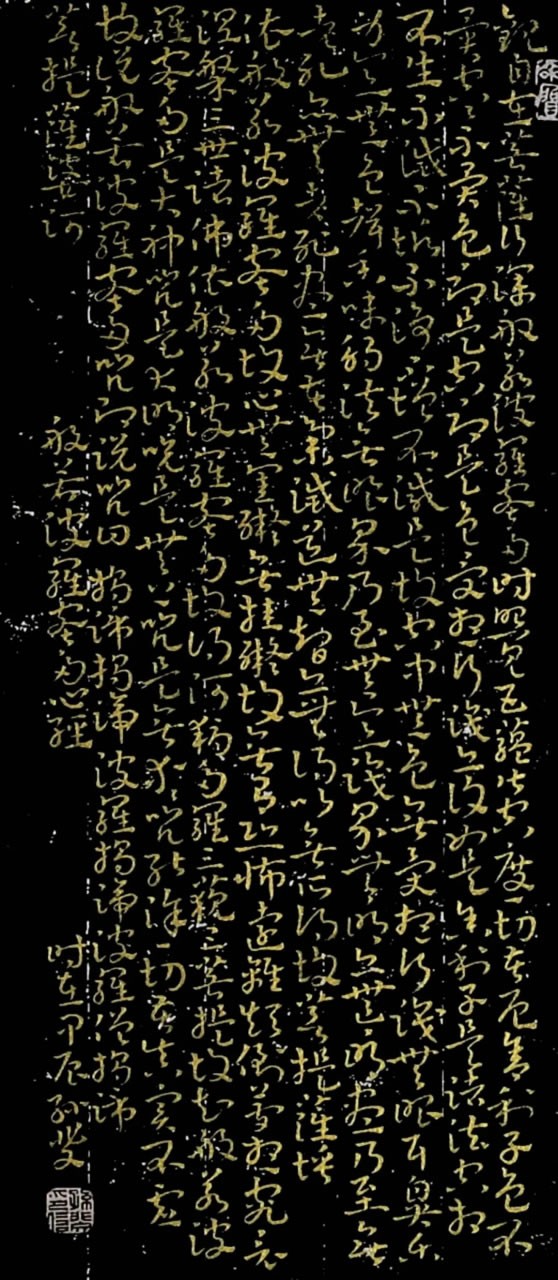 觀自在菩薩行深般若波羅蜜多時照見五蘊皆空度一切苦厄舍利子色不
異空空不異色色即是空空即是色受想行識亦復如是舍利子是諸法空相
不生不滅不垢不淨不增不減是故空中無色無受想行識無眼耳鼻舌
身意無色聲香味觸法無眼界乃至無意識界無無明亦無無明盡乃至無
老死亦無老死盡無苦集滅道無智亦無得以無所得故菩提薩埵
依般若波羅蜜多故心無罣礙無罣礙故無有恐怖遠離顛倒夢想究竟
涅槃三世諸佛依般若波羅蜜多故得阿耨多羅三藐三菩提故知般若波
羅蜜多是大神咒是大明咒是無上咒是無等等咒能除一切苦真實不虛
故說般若波羅蜜多咒即說咒曰 揭諦揭諦波羅揭諦波羅僧揭諦
菩提薩婆訶 般若波羅蜜多心經 時在甲辰孫